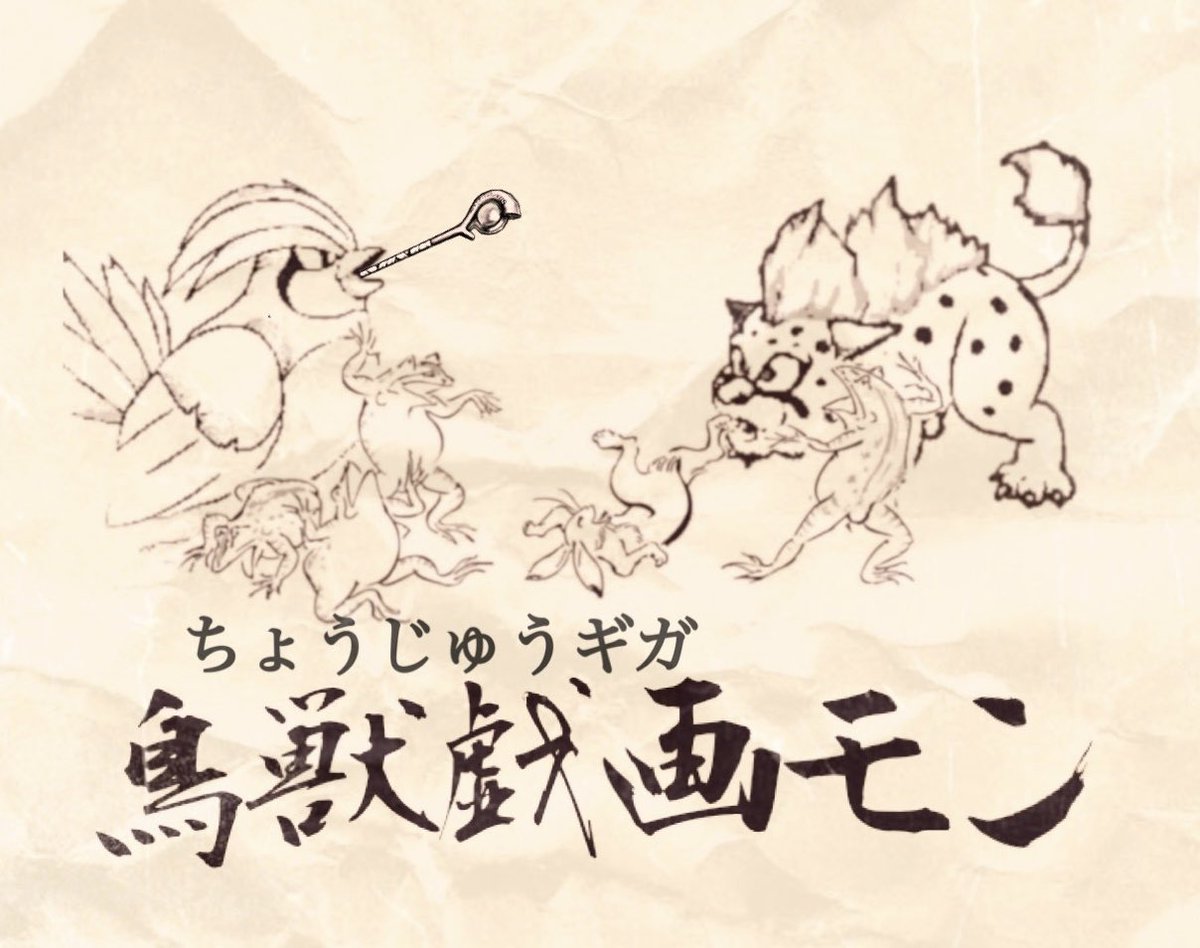 ちょうじゅうギガ
鳥獣戯画モン